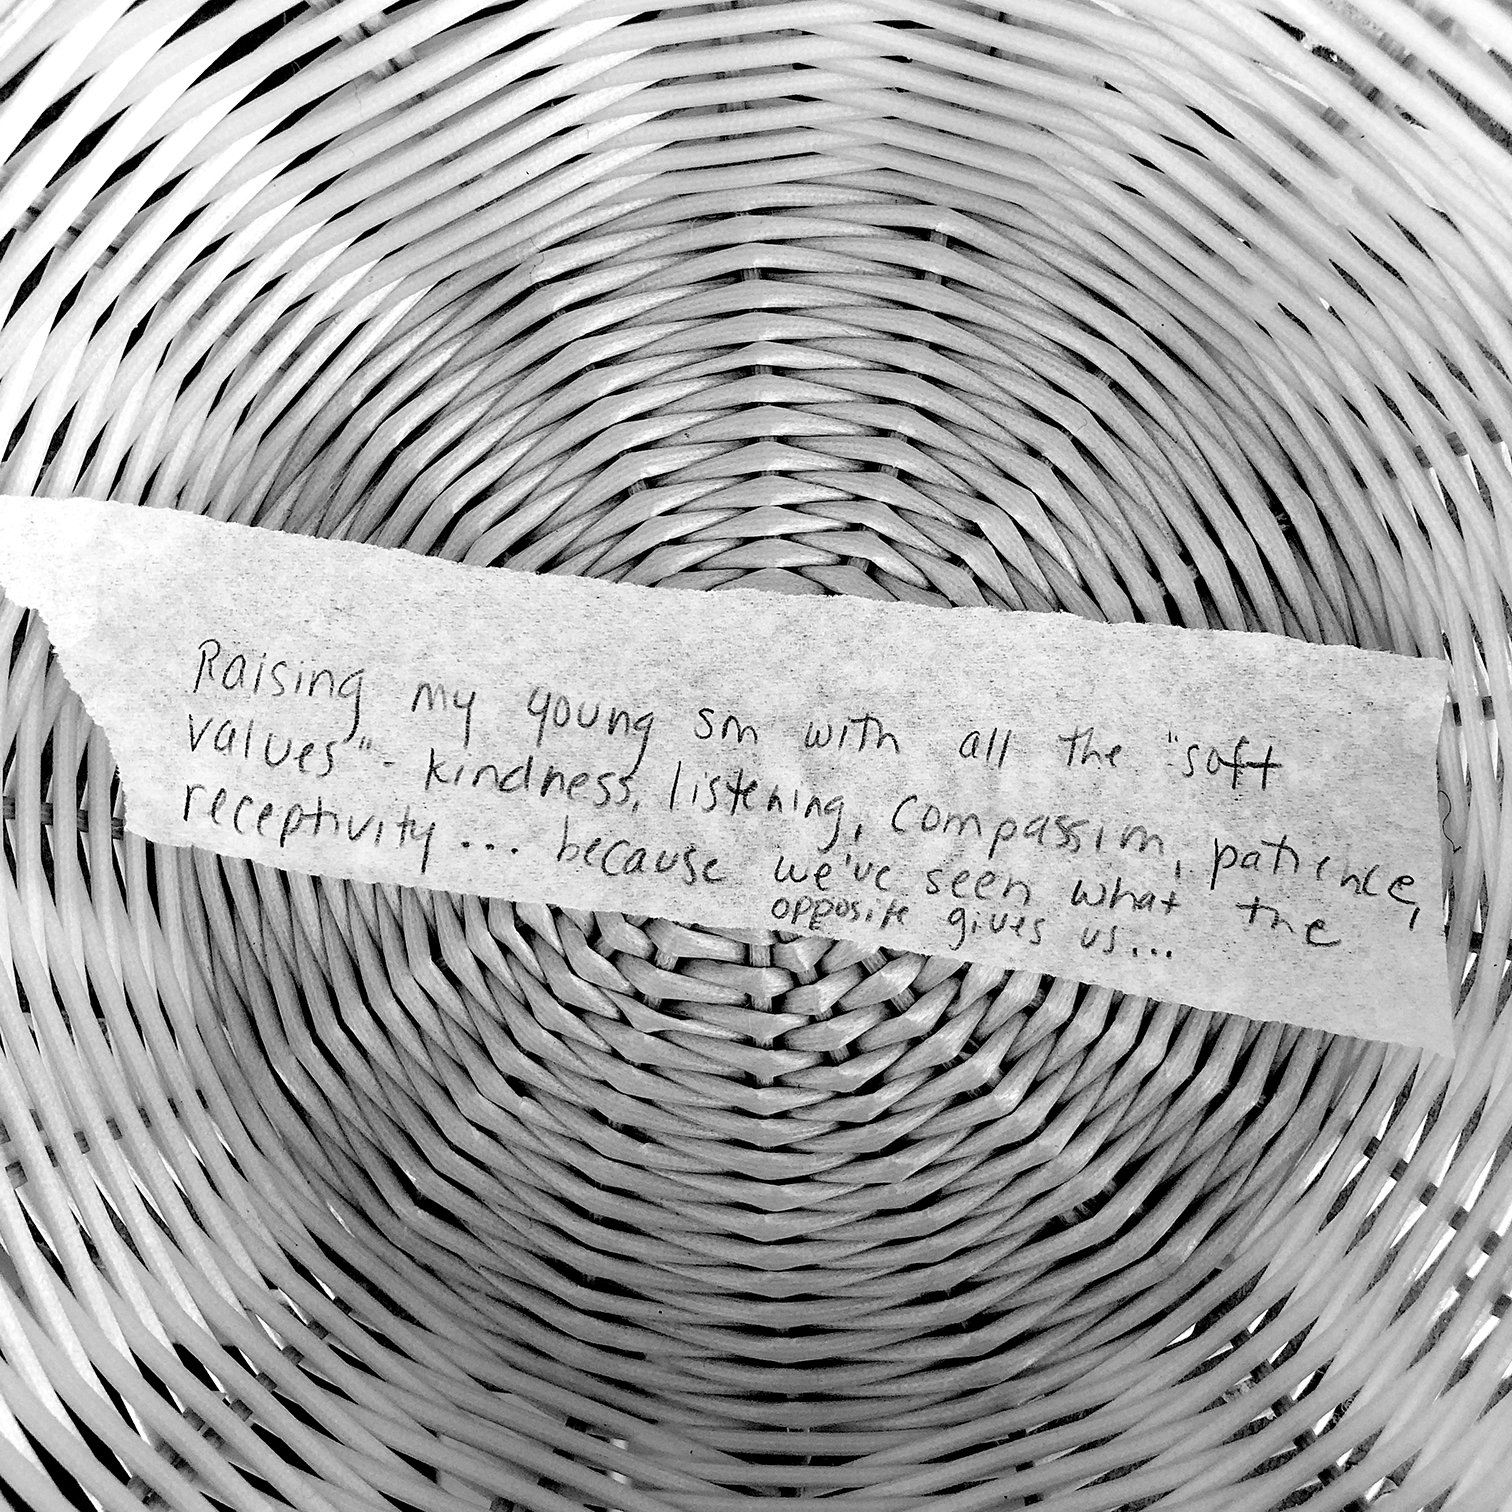 Raising my young son with all the "soft
values" - kindness, listening, compassion, patience,
receptivity... because we've seen what the
opposite gives us...